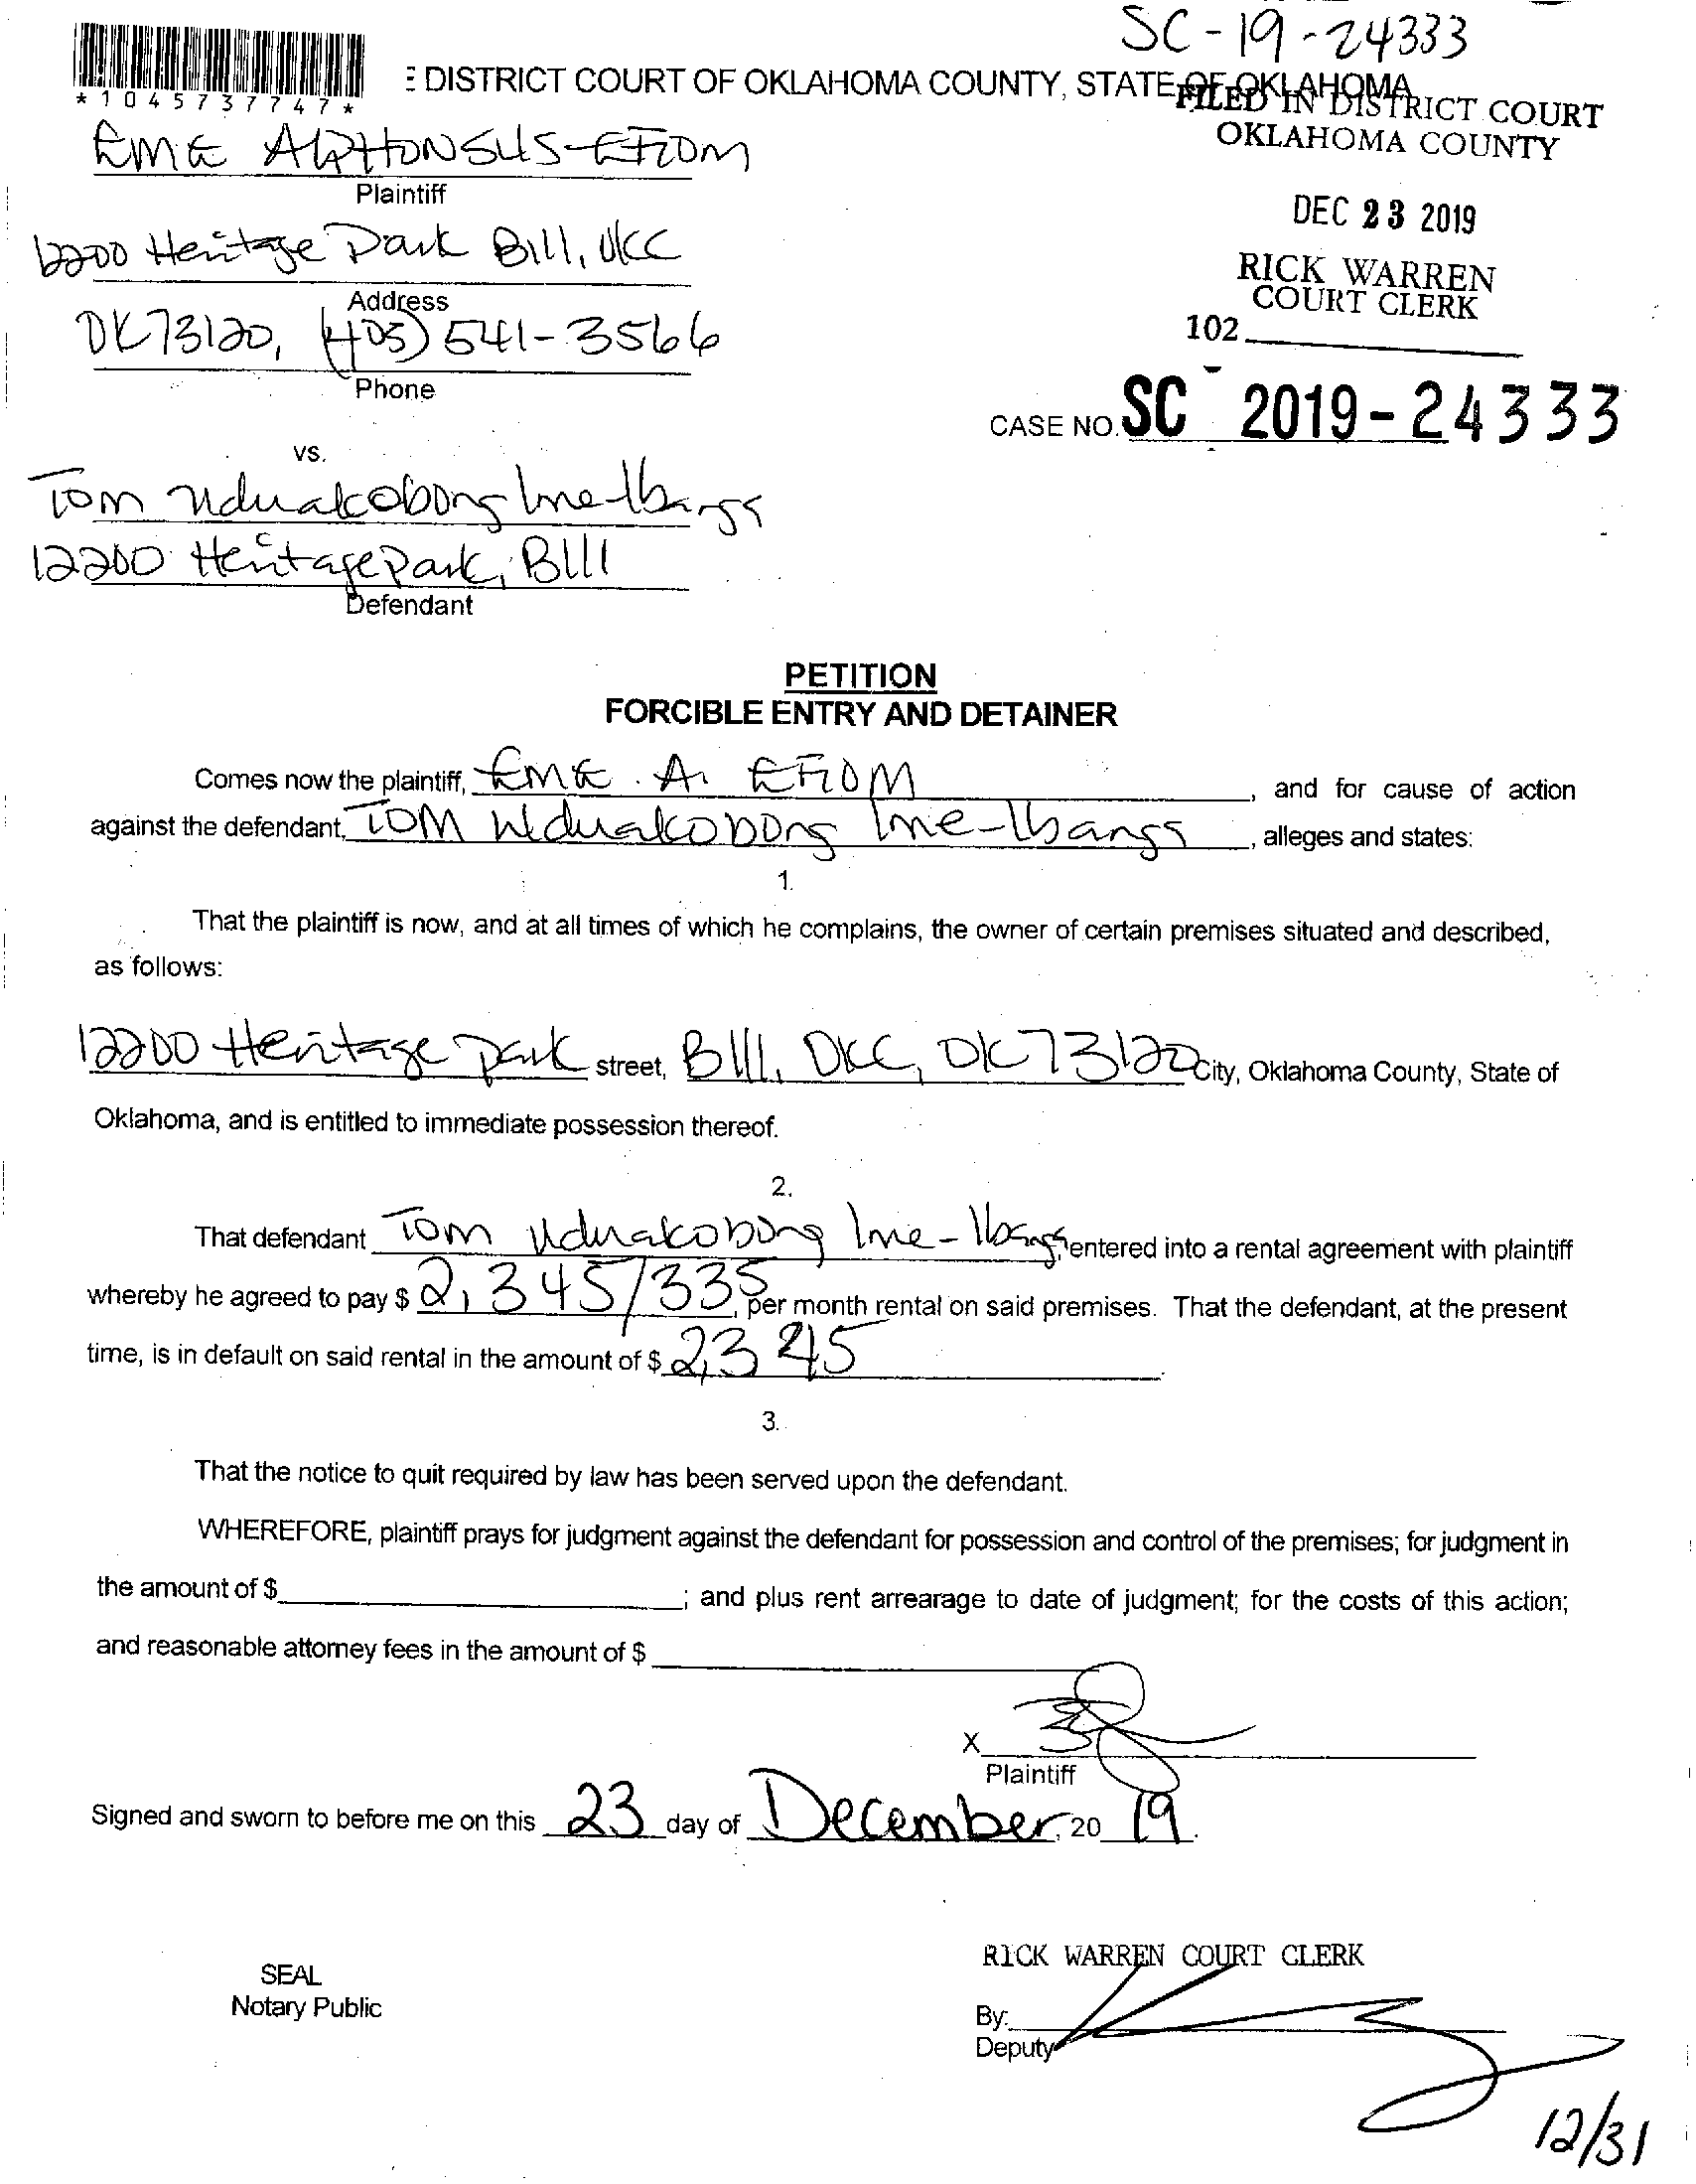 SC-19-24333
E DISTRICT COURT OF OKLAHOMA COUNTY, STATE OF OKLAHOMA
*1045737747*
FILED IN DISTRICT COURT
OKLAHOMA COUNTY
EME ALPHONSUS-EFIOM
Plaintiff
DEC 23 2019
12200 Heritage Park B111, OKC
Address
RICK WARREN
COURT CLERK
OK 73120, (405) 541-3566
102
Phone
CASE NO. SC - 2019-24333
vs.
Tom Uduakobong Ime-Ibanga
12200 Heritage Park, B111
Defendant
PETITION
FORCIBLE ENTRY AND DETAINER
Comes now the plaintiff, EME. A. EFIOM, and for cause of action
against the defendant, TOM Uduakobong Ime-Ibanga, alleges and states:
1.
That the plaintiff is now, and at all times of which he complains, the owner of certain premises situated and described,
as follows:
12200 Heritage Park street, B111, OKC, OK 73120 City, Oklahoma County, State of
Oklahoma, and is entitled to immediate possession thereof.
2.
That defendant Tom Uduakobong Ime-Ibanga, entered into a rental agreement with plaintiff
whereby he agreed to pay $ 2,345/335, per month rental on said premises. That the defendant, at the present
time, is in default on said rental in the amount of $ 2,345.
3.
That the notice to quit required by law has been served upon the defendant.
WHEREFORE, plaintiff prays for judgment against the defendant for possession and control of the premises; for judgment in
the amount of $ ; and plus rent arrearage to date of judgment; for the costs of this action;
and reasonable attorney fees in the amount of $
X
Plaintiff
Signed and sworn to before me on this 23 day of December, 20 19.
RICK WARREN COURT CLERK
SEAL
Notary Public
By:
Deputy
12/31